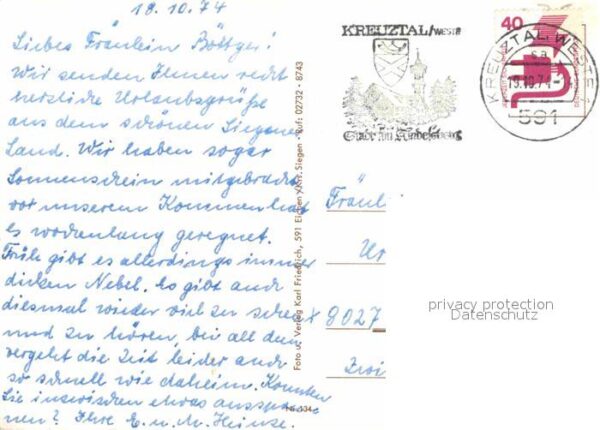 18.10.74
Liebes Fräulein Böttger!
Wir senden Ihnen recht
herzliche Urlaubsgrüße
aus dem schönen Siegener
Land. Wir haben sogar
Sonnenschein mitgebracht
vor unserem Kommen hat
es wochenlang geregnet.
Früh gibt es allerdings immer
dicken Nebel. Es gibt auch
diesmal wieder viel zu sehen
und zu hören, bei all dem
vergeht die Zeit leider auch
so schnell wie daheim. Konnten
Sie inzwischen etwas ausspan-
nen? Ihre E. u. M. Heinze.
Foto u. Verlag Karl Friedrich, 591 Eichen Krs. Siegen - Ruf: 02732 - 8743
KREUZTAL/WESTF
Stadt am Kindelsberg
40
KREUZTAL, WESTF 1
sa
19.10.74
591
Fräul
Ur
8027
Zwi
privacy protection
Datenschutz